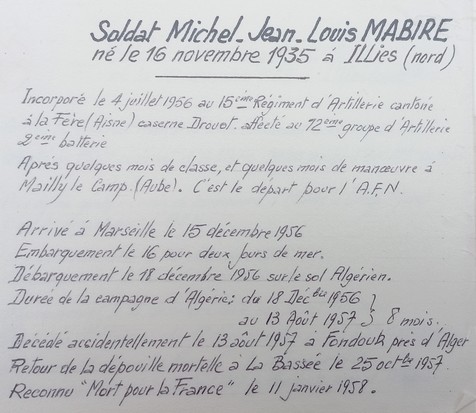 Soldat Michel-Jean-Louis MABIRE
né le 16 novembre 1935 à ILLIES (nord)
Incorporé le 4 juillet 1956 au 15ème Régiment d'Artillerie cantoné
à la Fère (Aisne) caserne Drouot. affecté au 72ème groupe d'Artillerie
2ème batterie
Après quelques mois de classe, et quelques mois de manœuvre à
Mailly le Camp (Aube). C'est le départ pour l'A.F.N.
Arrivé à Marseille le 15 décembre 1956
Embarquement le 16 pour deux jours de mer.
Débarquement le 18 décembre 1956 sur le sol Algérien.
Durée de la campagne d'Algérie; du 18 Décbre 1956
au 13 Août 1957 } 8 mois.
Décédé accidentellement le 13 août 1957 à Fondouk près d'Alger
Retour de la dépouille mortelle à La Bassée le 25 octbre 1957.
Reconnu "Mort pour la France" le 11 janvier 1958.